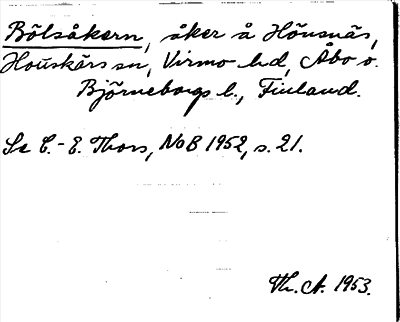 Bölsåkern, åker å Hönsnäs,
Houtskärs sn, Virmo hd, Åbo o.
Björneborgs l., Finland.
Se C.-E. Thors, NoB 1952, s. 21.
Th. A. 1953.